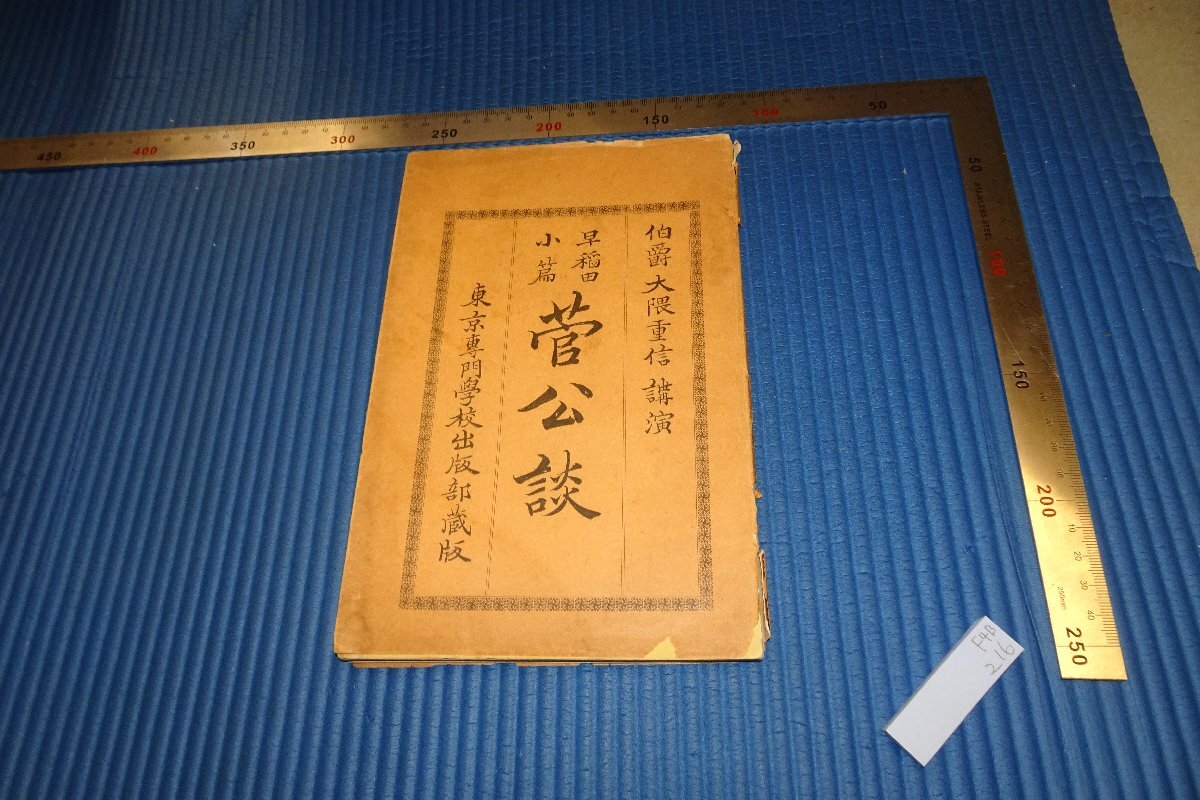 伯爵 大隈重信 講演
早稲田
小篇
菅公談
東京專門學校出版部蔵版
450 400 350 300 250 200 150 100 50
50
STAINLESS STEEL
100
150
200
250
F4B
216